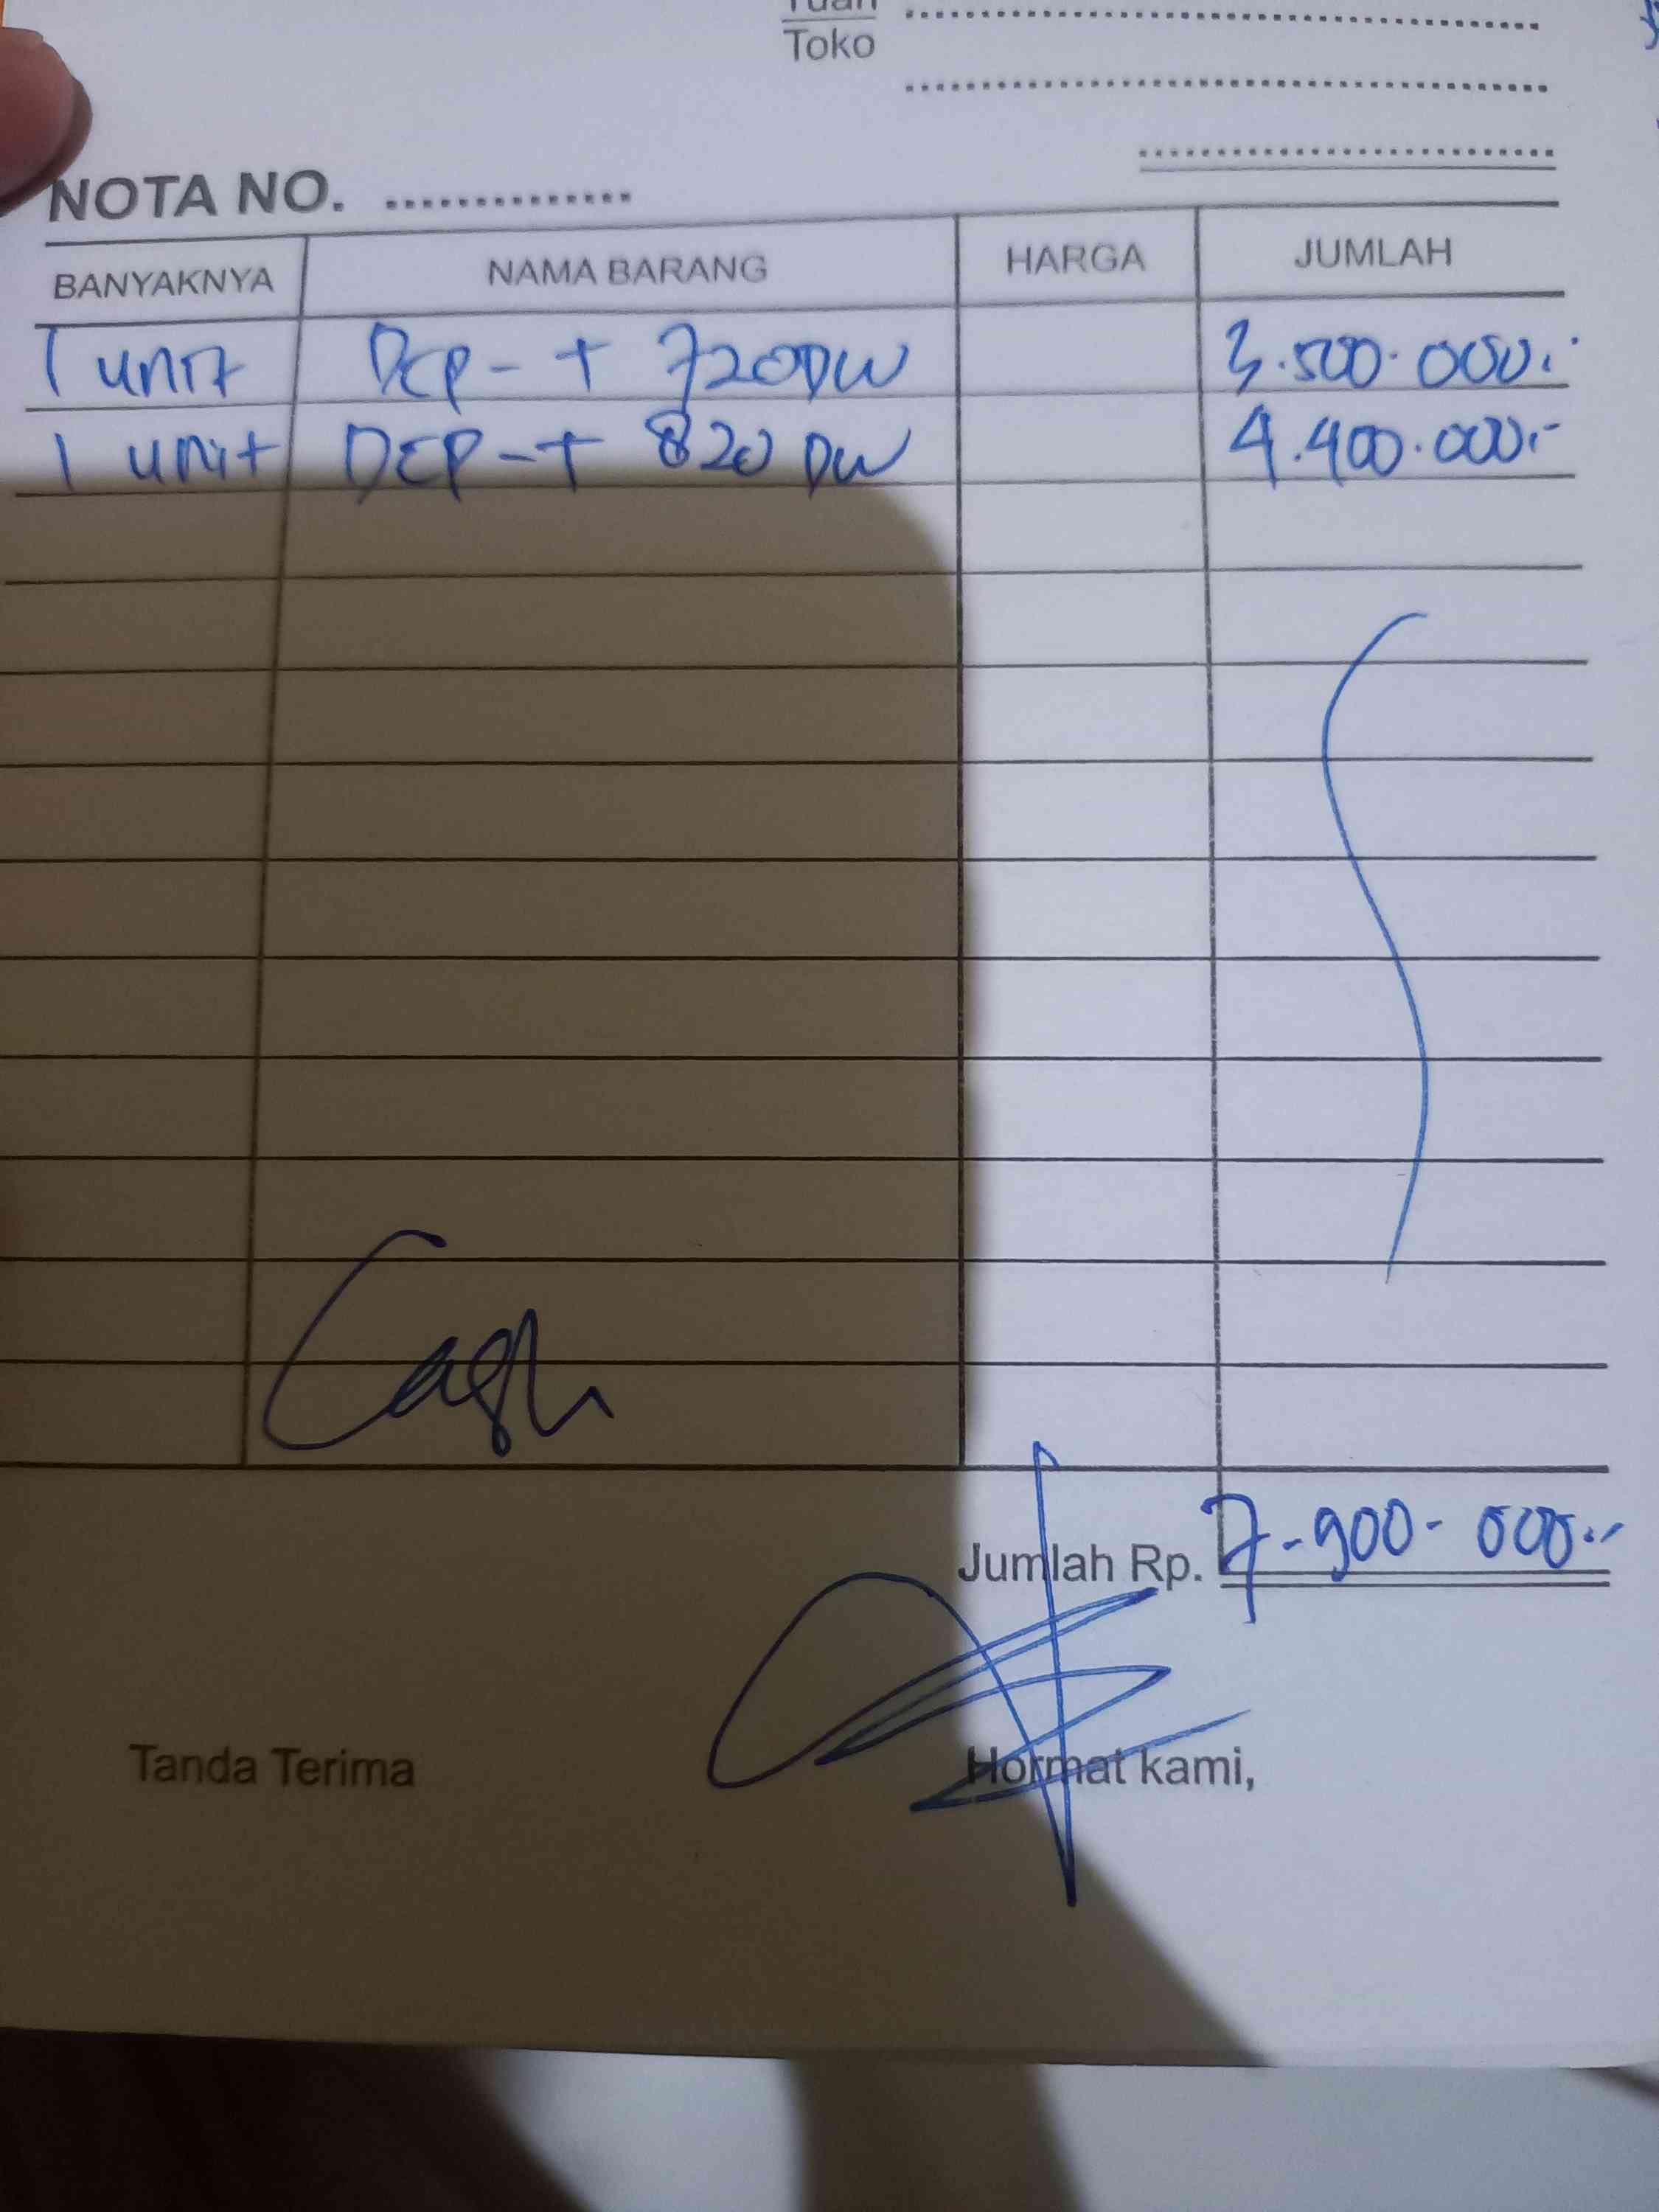 Tuan
Toko
NOTA NO. ..............
BANYAKNYA NAMA BARANG HARGA JUMLAH
1 unit DCP-T 720DW 3.500.000.-
1 unit DCP-T 820 DW 4.400.000.-
Cash
Jumlah Rp. 7.900.000.-
Tanda Terima Hormat kami,